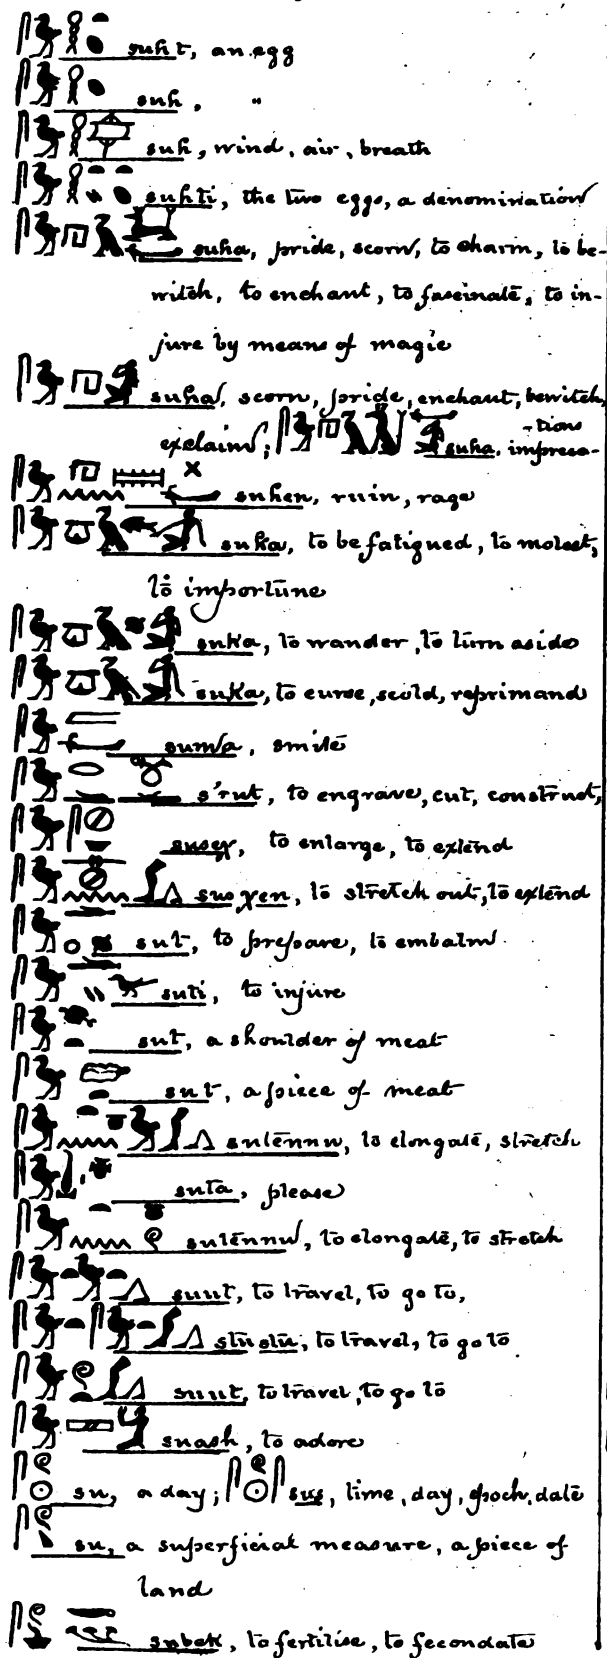 suht, an egg
suh, "
suh, wind, air, breath
suhti, the two eggs, a denomination
suha, pride, scorn, to charm, to be-
witch, to enchant, to fascinate, to in-
jure by means of magic
suha, scorn, pride, enchant, bewitch,
exclaim; suha, impreca-
-tions
suhen, ruin, rage
suka, to be fatigued, to molest,
to importune
suka, to wander, to turn aside
suka, to curse, scold, reprimand
suma, smile
s'rut, to engrave, cut, construct,
suseχ, to enlarge, to extend
susχen, to stretch out, to extend
sut, to prepare, to embalm
suti, to injure
sut, a shoulder of meat
sut, a piece of meat
sutennu, to elongate, stretch
suta, please
sutennu, to elongate, to stretch
suut, to travel, to go to,
stustu, to travel, to go to
suut, to travel, to go to
suash, to adore
su, a day; sus, time, day, epoch, date
su, a superficial measure, a piece of
land
subek, to fertilise, to fecondate